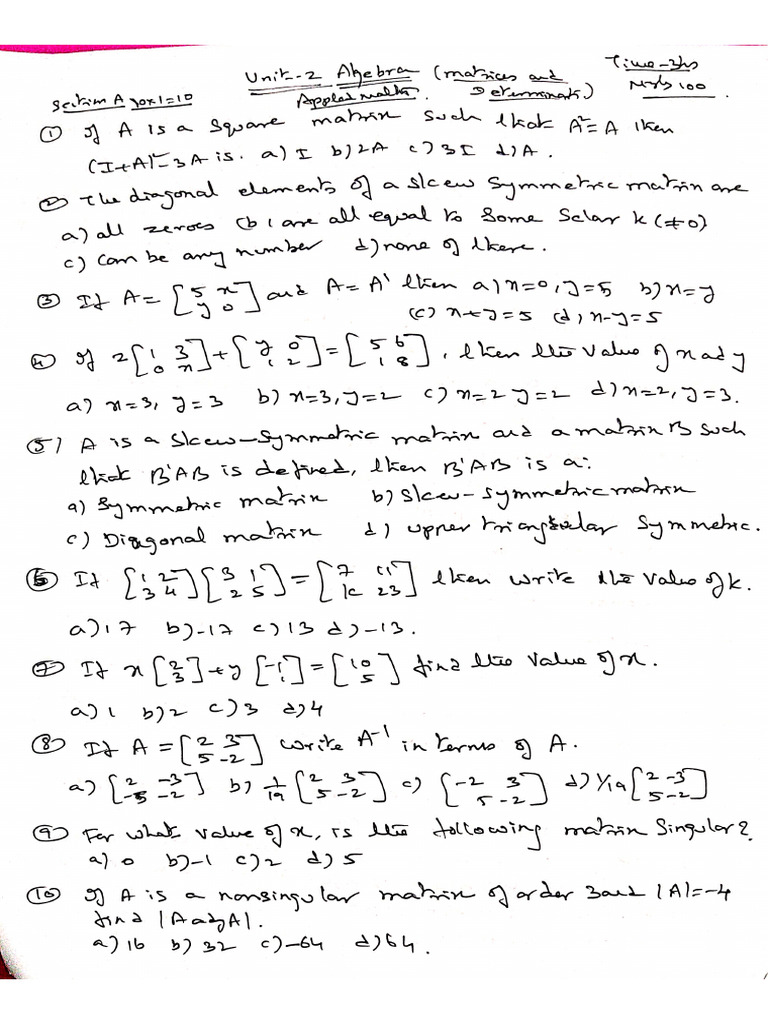 Unit-2 Algebra (matrices and Time-3hs
Section A 10x1=10 Applied maths Determinants) Mrks 100
① If A is a square matrix such that A²=A then
(I+A)²-3A is. a) I b) 2A c) 3I d) A.
② The diagonal elements of a skew symmetric matrix are
a) all zeroes (b, are all equal to some Scalar k (≠0)
c) can be any number d) none of these.
③ If A = [5 x
y 0] and A = A' then a) x=0, y=5 b) x=y
(c) x+y=5 (d, x-y=5
④ If 2[1 3
0 x] + [y 0
1 2] = [5 6
1 8], then the value of x ad y
a) x=3, y=3 b) x=3, y=2 c) x=2 y=2 d) x=2, y=3.
⑤) A is a skew-symmetric matrix and a matrix B such
that B'AB is defined, then B'AB is a:
a) Symmetric matrix b) Skew-symmetric matrix
c) Diagonal matrix d) upper triangular symmetric.
⑥ If [1 2
3 4] [3 1
2 5] = [7 11
k 23] then write the value of k.
a) 17 b) -17 c) 13 d) -13.
⑦ If x[2
3] + y[-1
1] = [10
5] find the value of x.
a) 1 b) 2 c) 3 d) 4
⑧ If A = [2 3
5 -2] write A⁻¹ in terms of A.
a) [2 -3
-5 -2] b) 1/19 [2 3
5 -2] c) [-2 3
5 -2] d) 1/19 [2 -3
5 -2]
⑨ For what value of x, is the following matrix Singular?
a) 0 b) -1 c) 2 d) 5
⑩ If A is a nonsingular matrix of order 3 and |A|=-4
find |AadjA|.
a) 16 b) 32 c) -64 d) 64.